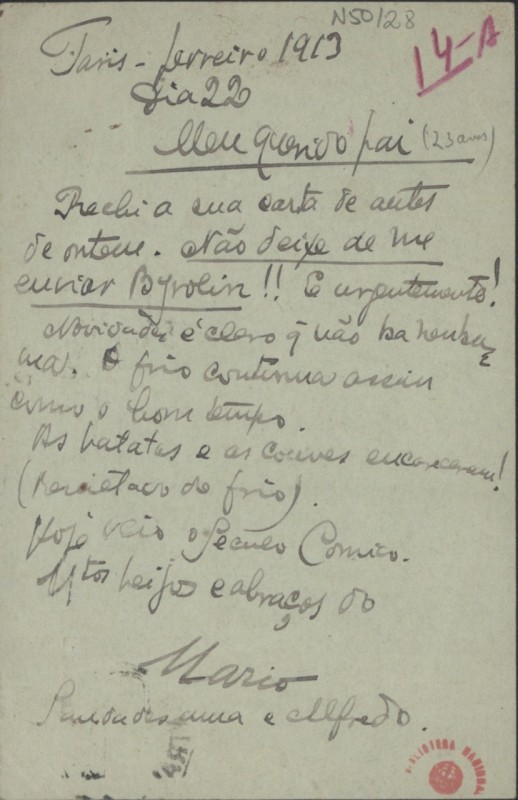 N50/28
14-A
Paris - fevreiro 1913
Dia 22
Meu querido pai (23 anos)
Recebi a sua carta de antes
de ontem. Não deixe de me
enviar Byrolin!! E urgentemente!
Novidades é claro q não ha nenhu=
ma. O frio continua assim
como o bom tempo.
As batatas e as couves encareceram!
(Resultado do frio).
Hoje veio o Seculo Comico.
Mtos beijos e abraços do
Mario
Saudades ama e Alfredo.
BIBLIOTECA NACIONAL